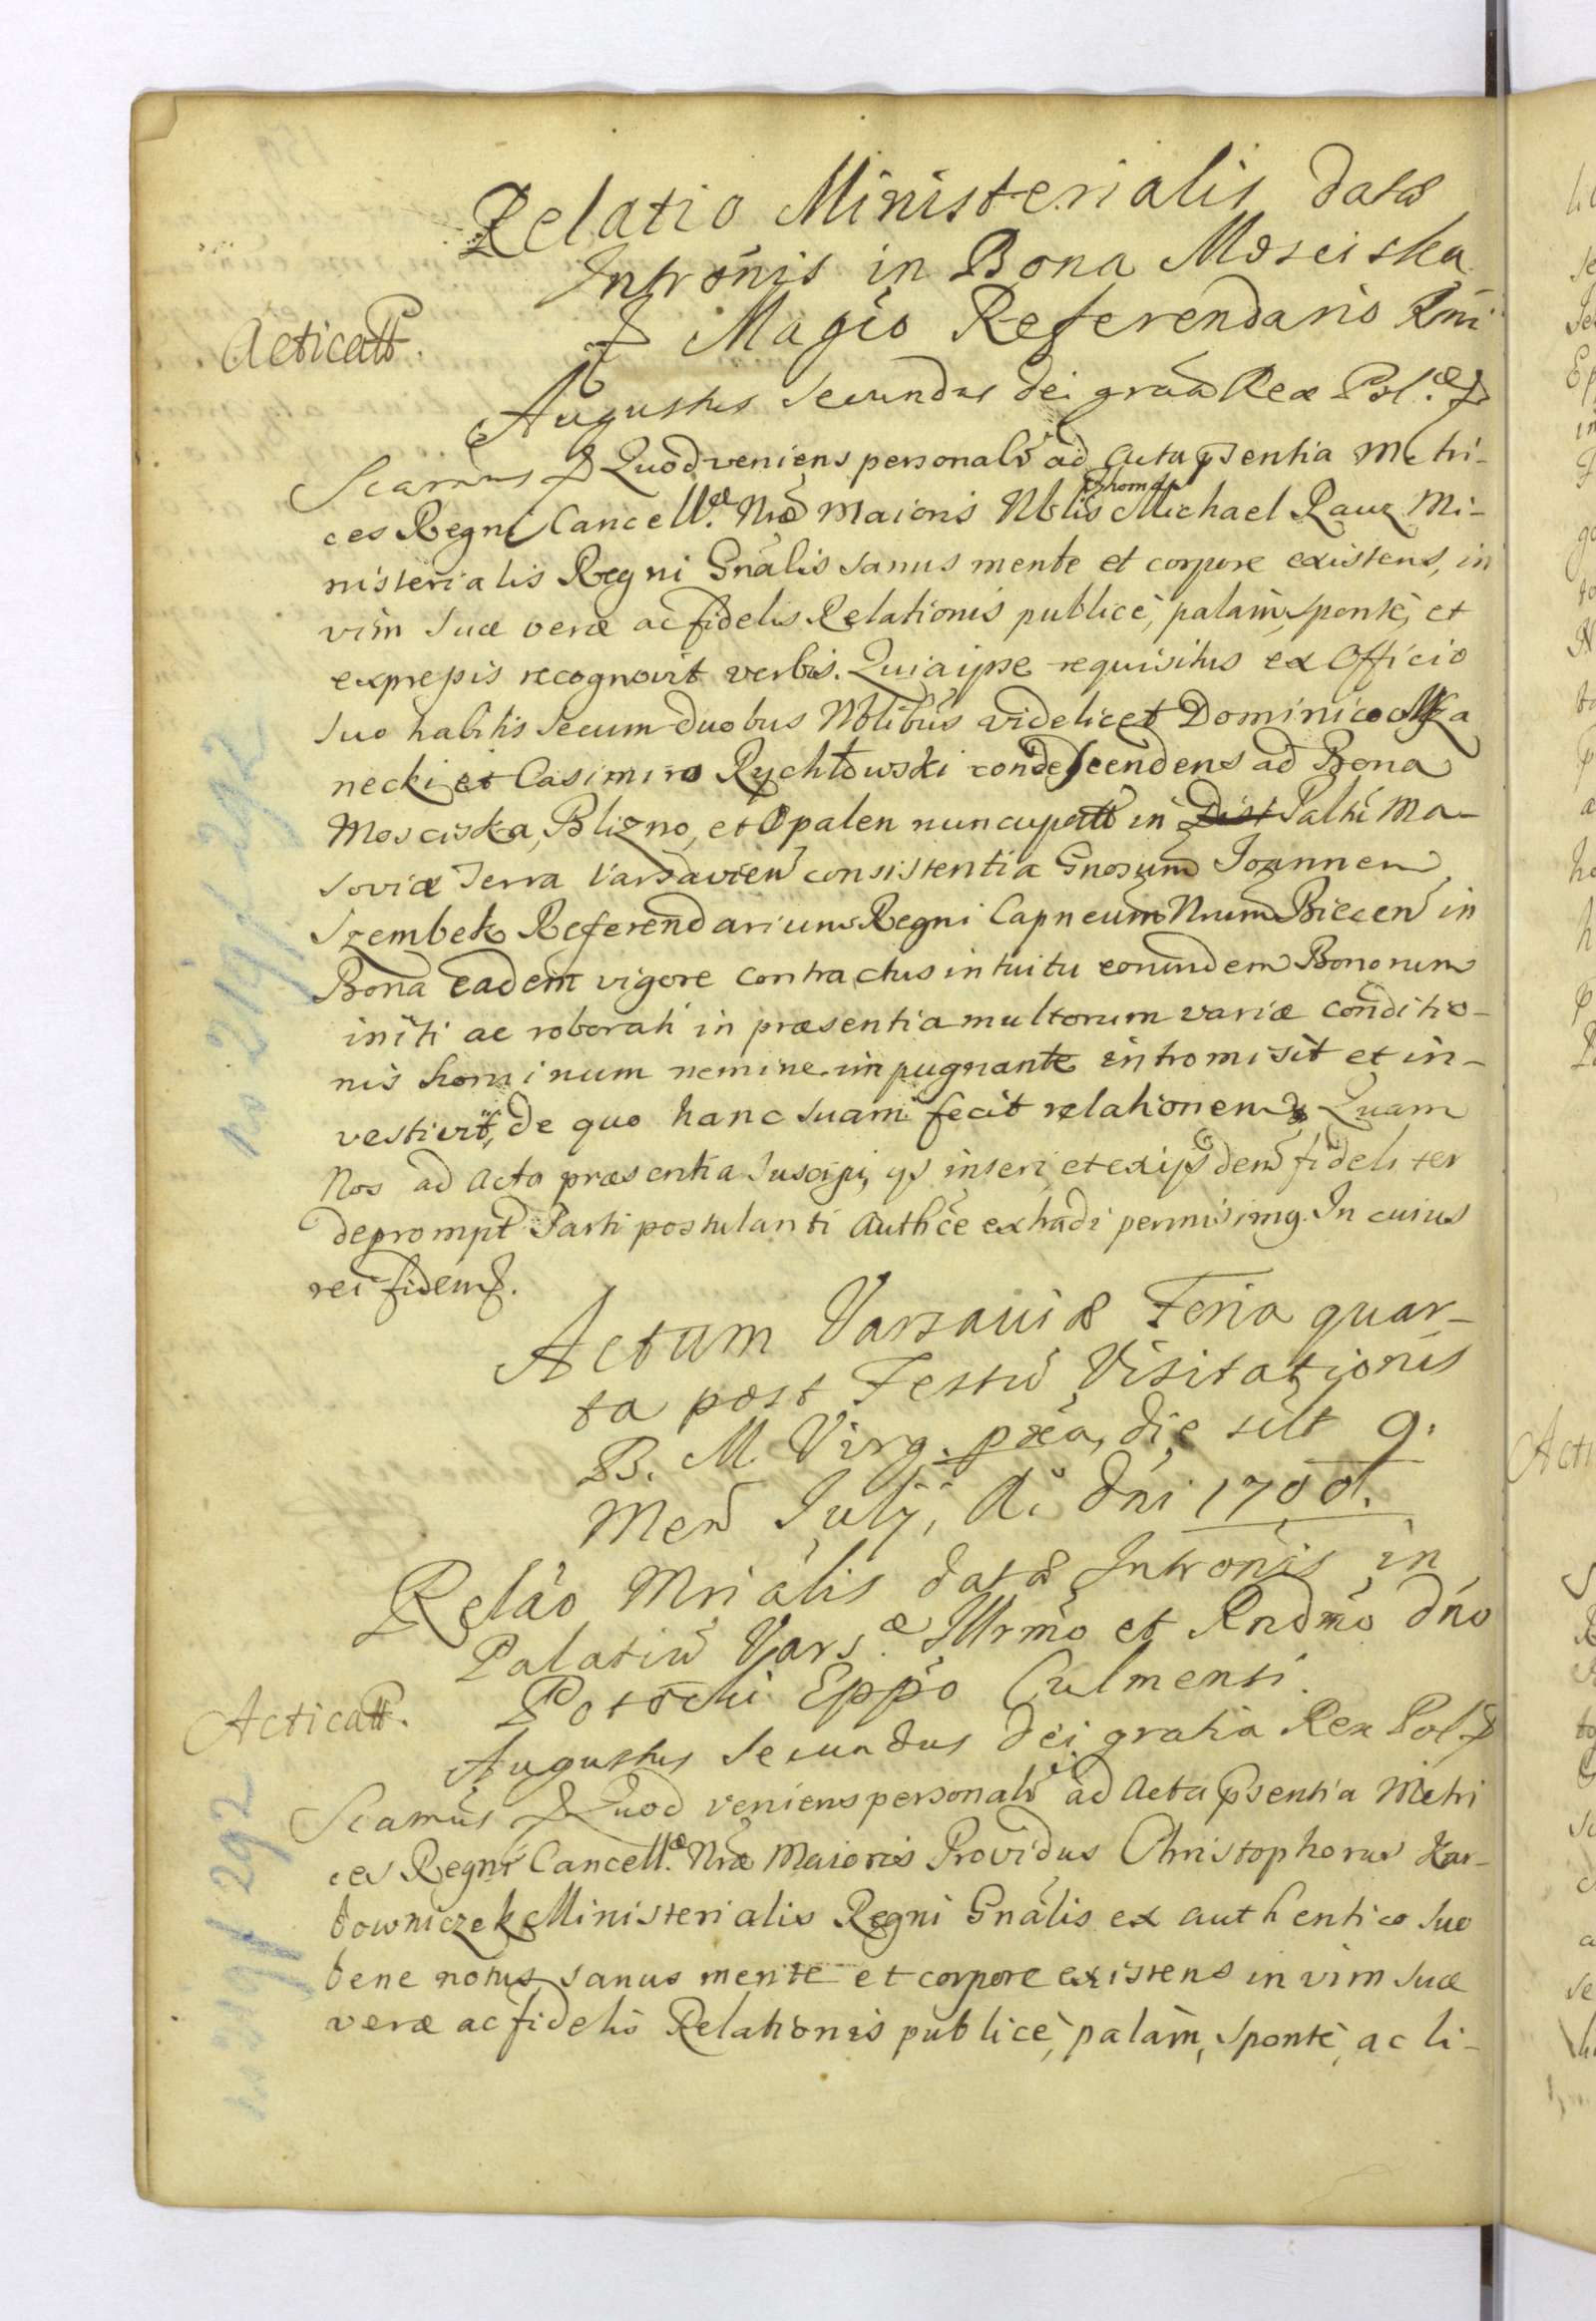 Relatio Ministerialis datæ
Intrōnis in Bona Mosciska
Acticatt.
Magco Referendario Rni
Augustus Secundus Dei graa Rex Pol.æ
Scamus Quod veniens personalr ad Acta psentia Metri-
Thomas
ces Regni Cancell.æ Nræ Maioris Nblis Michael Rauz Mi-
nisterialis Regni Gnalis sanus mente et corpore existens, in
vim suæ veræ ac fidelis Relationis publicè, palàm, spontè, et
expressis recognovit verbis. Quia ipse requisitus ex Officio
suo habitis secum duobus Nblibus videlicet Dominico
necki et Casimiro Rychłowski condescendens ad Bona
Mosciska, Blizno, et Opalen nuncupatt in Dist Palttu Ma-
soviæ Terra Varsavien consistentia Gnosum Joannem
Szembek Referendarium Regni Capneum Nrum Biecen in
Bona eadem vigore contractus intuitu eorundem Bonorum
initi ac roborati in præsentia multorum variæ conditio-
nis hominum nemine impugnante intromisit et in-
vestivit, De quo hanc suam fecit relationem Quam
Nos ad Acta præsentia suscipi, inseri et ex ijsdem fideliter
deprompt Parti postulanti Authce extradi permisimg. In cuius
rei fidem.
Actum Varsaviæ Feria quar-
ta post Festū Visitationis
B. M. Virg. pxa, die silt 9.
Men Julij, Ai Dni 1700.
Relāo Mrialis datæ Intronis in
Palatiū Vars.æ Illrmo et Rndmo Dno
Potocki Eppo Culmensi.
Acticatt.
Augustus Secundus Dei gratia Rex Pol
Scamus Quod veniens personalr ad Acta psentia Metri
ces Regni Cancell.æ Nræ Maioris Providus Christophorus Kar-
bowniczek Ministerialis Regni Gnalis ex authentico suo
bene notus sanus mente et corpore existens in vim suæ
veræ ac fidelis Relationis publicè, palàm, spontè, ac li-